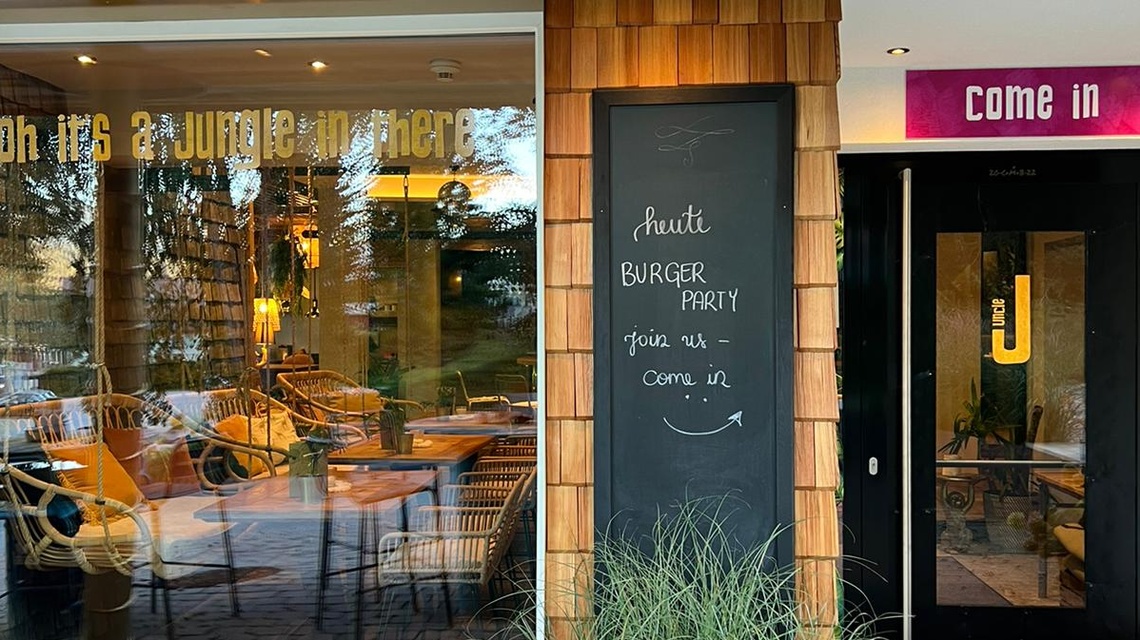 oh it's a Jungle in there
heute
BURGER
PARTY
join us -
come in
come in
20*C+M+B*22
Uncle
J